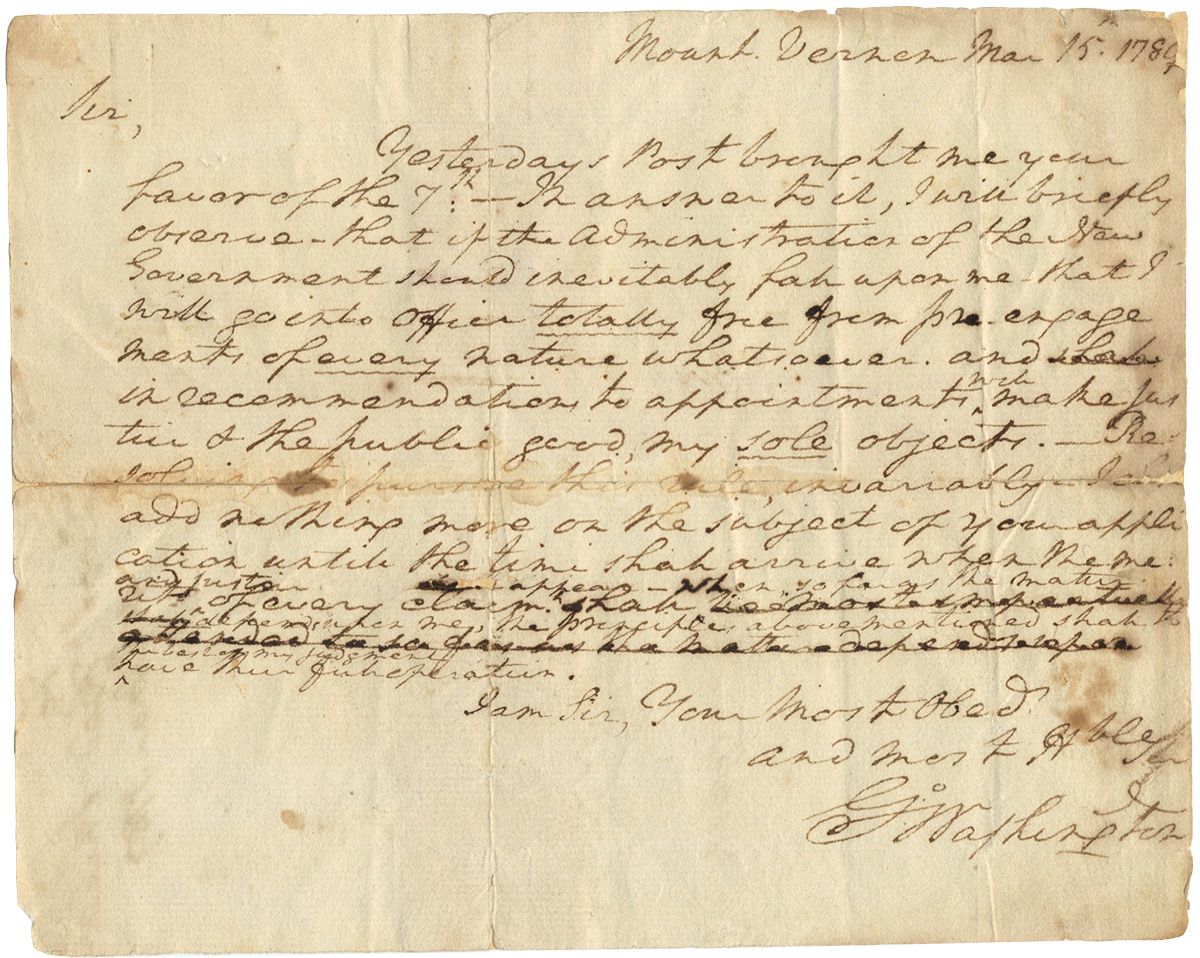 Mount Vernon Mar 15th 1789
Sir,
Yesterdays Post brought me your
favor of the 7th — In answer to it, I will briefly
observe – that if the Administration of the New
Government should inevitably fall upon me – that I
will go into Office totally free from pre-engage
ments of every nature whatsoever. and shall
in recommendations to appointments will make Jus
tice & the public good, my sole objects. — Re
solving to pursue this rule, invariably – I
add nothing more on the subject of your appli
cation until the time shall arrive when the me:
and justice appear – when, so far as the matter
rits of every claim shall
depend upon me, the principles abovementioned shall
as the matter depends upon
my judgment
have their full operation.
I am Sir, Your Most Obed.t
and most Hble Ser
Go: Washington